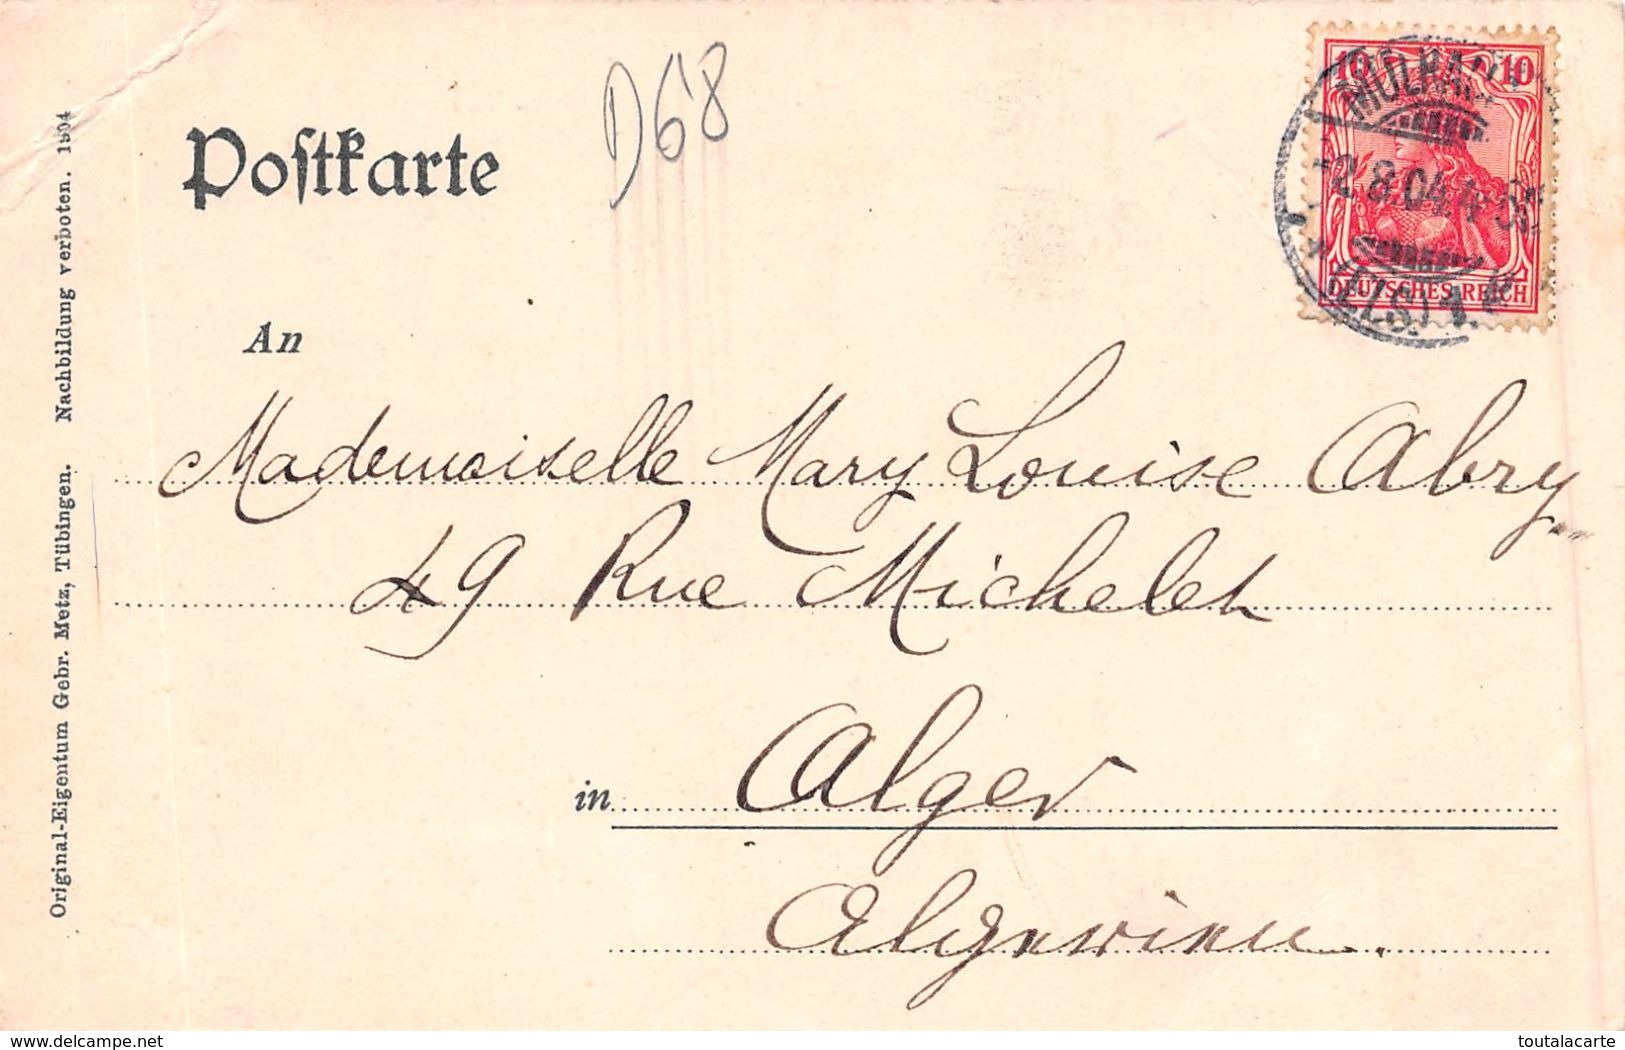 Postkarte
D68
10 10
MÜLHAU
-2.8.04.4-5
* (ELS.) 1.
DEUTSCHES REICH
An
Mademoiselle Mary Louise Abry
49 Rue Michelet
in Alger
Algerien.
Original-Eigentum Gebr. Metz, Tübingen. Nachbildung verboten. 1904
delcampe.net
toutalacarte